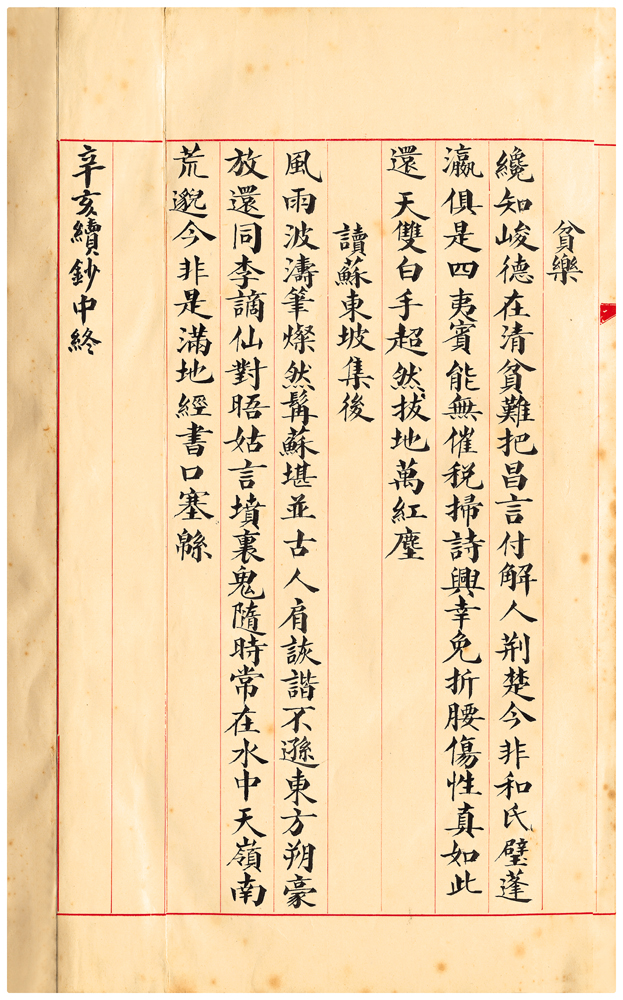 貧樂
纔知峻德在清貧難把昌言付解人荆楚今非和氏璧蓬
瀛俱是四夷賓能無催税掃詩興幸免折腰傷性真如此
還天雙白手超然拔地萬紅塵
讀蘇東坡集後
風雨波濤筆燦然髯蘇堪並古人肩詼諧不遜東方朔豪
放還同李謫仙對晤姑言墳裏鬼隨時常在水中天嶺南
荒邈今非是滿地經書口塞緜
辛亥續鈔中終